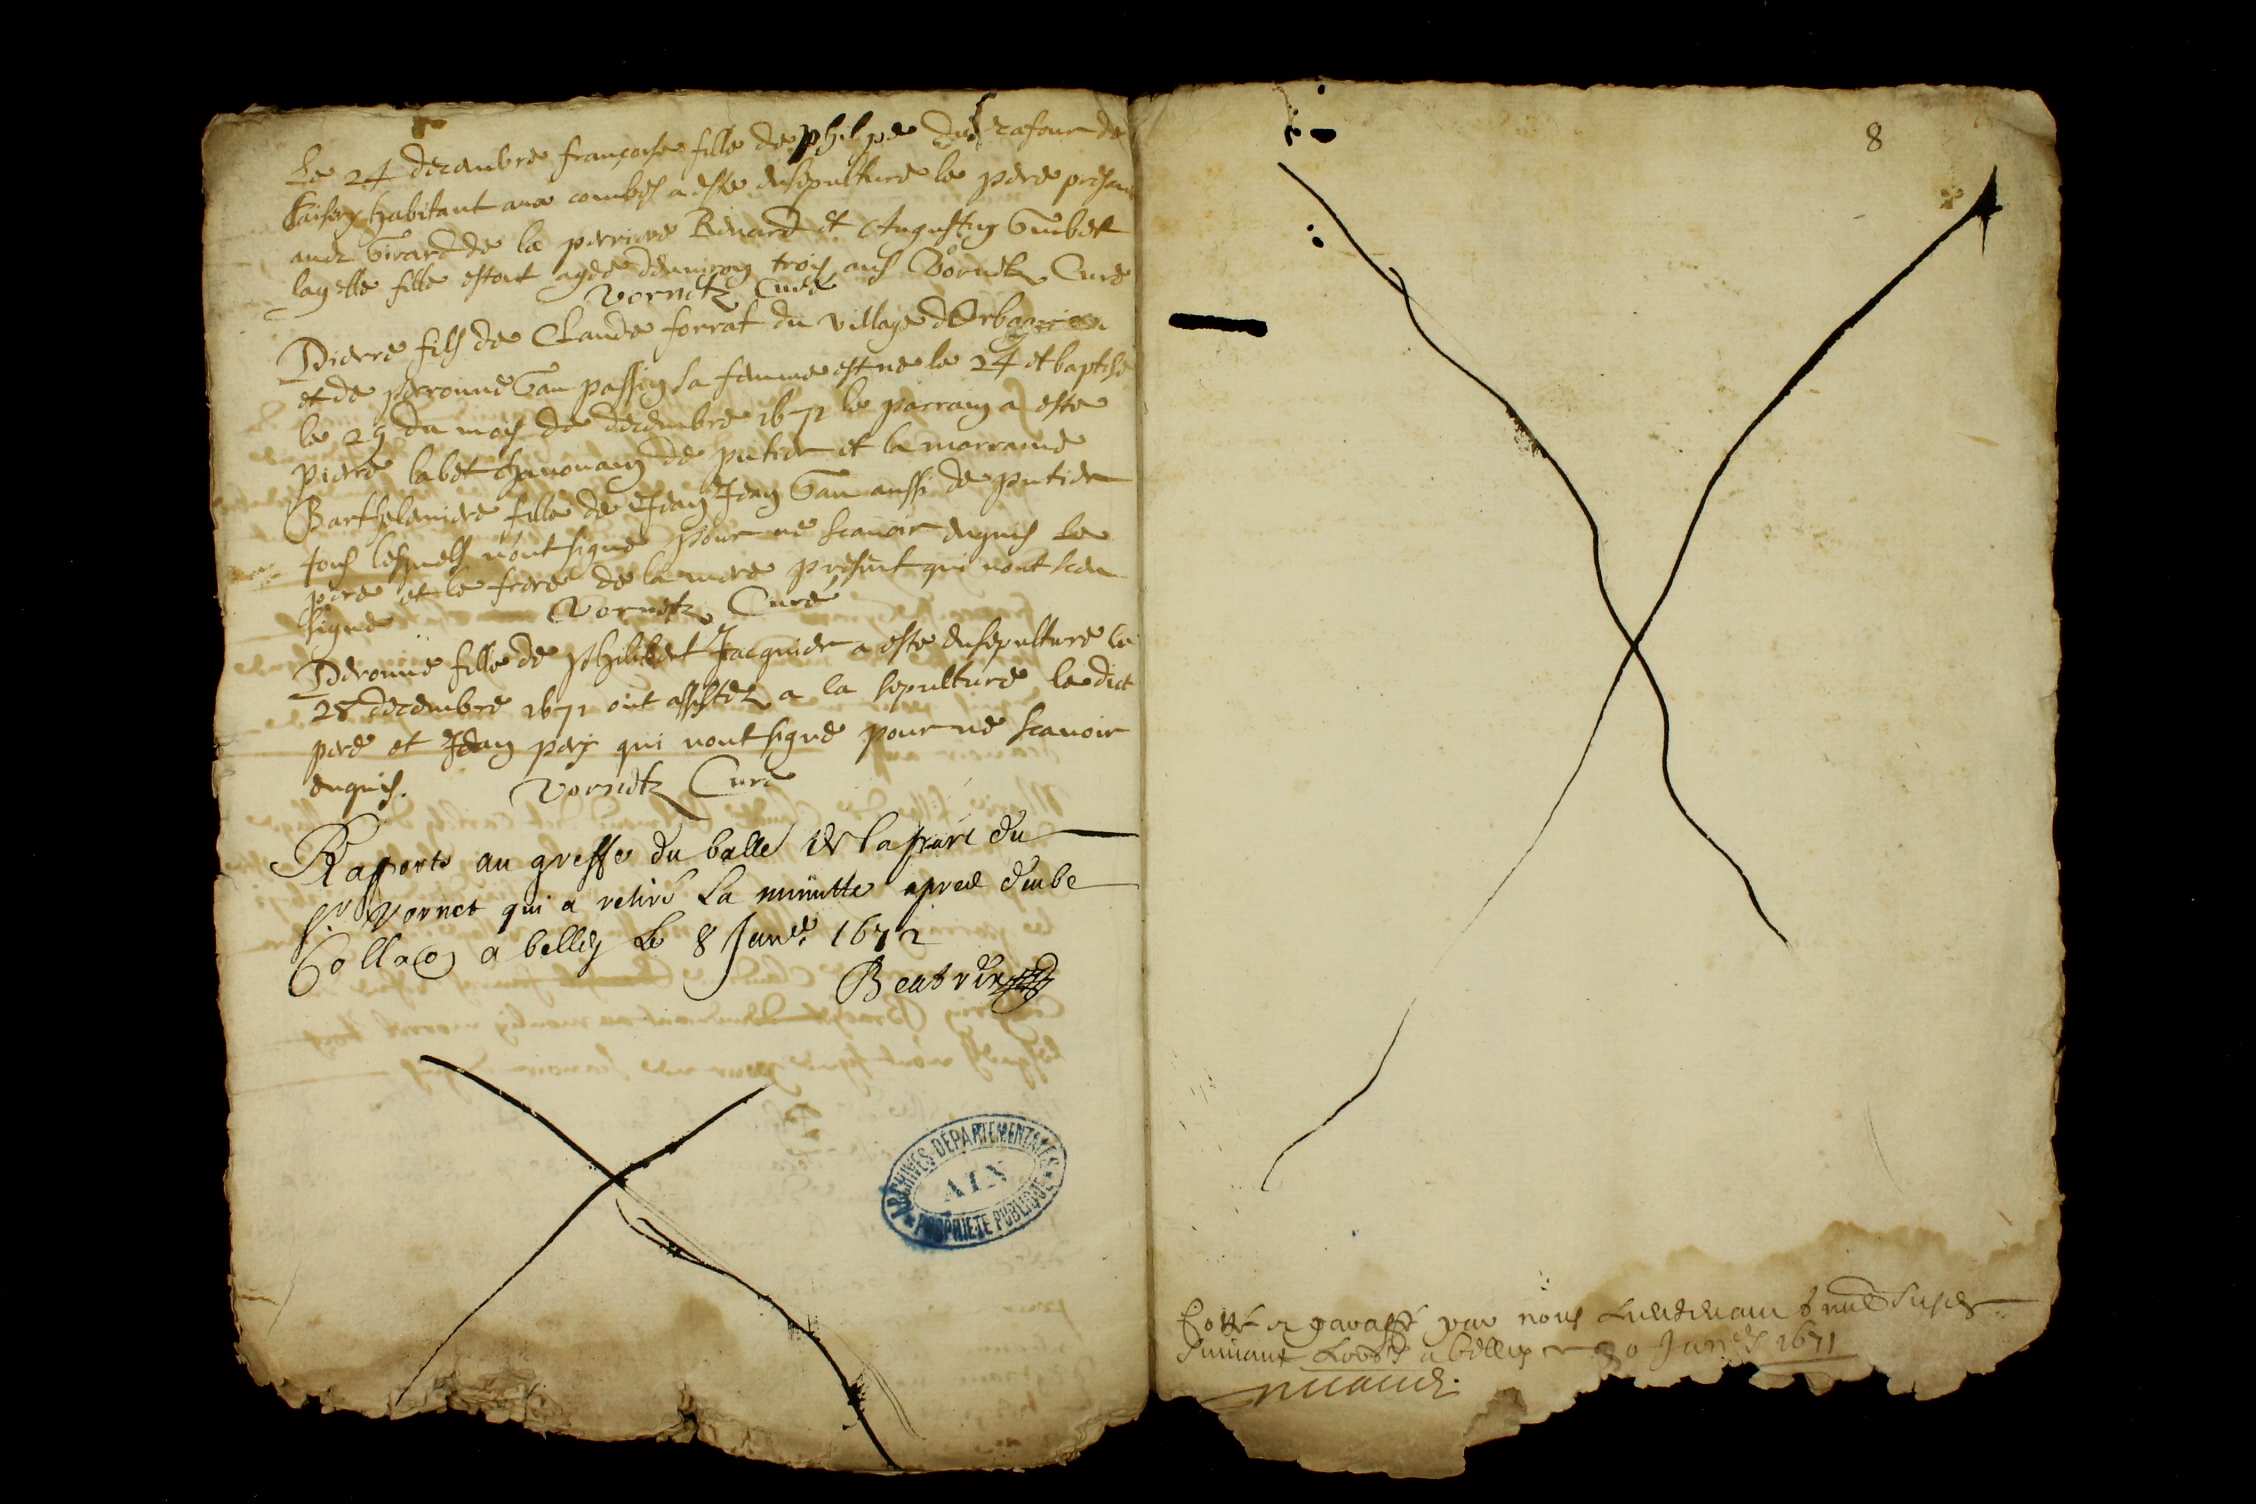 Le 24 decembre françoise fille de philipe du rafour de
habitant aux combes a este ensepulturé le pere presant
avec Girard de la perriere Benard et Augustin Guibert
laqlle fille estoit agee denviron trois ans Vornetz Curé
Vornetz Curé
Pierre fils de Claude forrat du village
et de peronne Gau passin sa femme est ne le 24 et baptisé
le 29 du mois de decembre 1671 le parrain a este
pierre labet de putier et la marraine
Barthelemiere fille de Jean Gau aussi de putier
tous lesquels n'ont signé pour ne scavoir enquis le
pere et le frere de la mere present qui n'ont sceu
signe Vornetz Curé
Peronne fille de philibert Jacquier a este ensepulturé le
28 decembre 1671 ont assistez a la sepulture le dict
pere et Jean pery qui n'ont signé pour ne scavoir
enquis. Vornetz Curé
Raporté au greffe du balle de la part du
Sr Vornet qui a retiré la minutte apres
Collaon a belley Le 8 Janer 1672
8
Cotté et paraffé par nous Lieutenant
Suivant a belley 30 Janer 1671
ARCHIVES DÉPARTEMENTALES
AIN
PROPRIÉTÉ PUBLIQUE